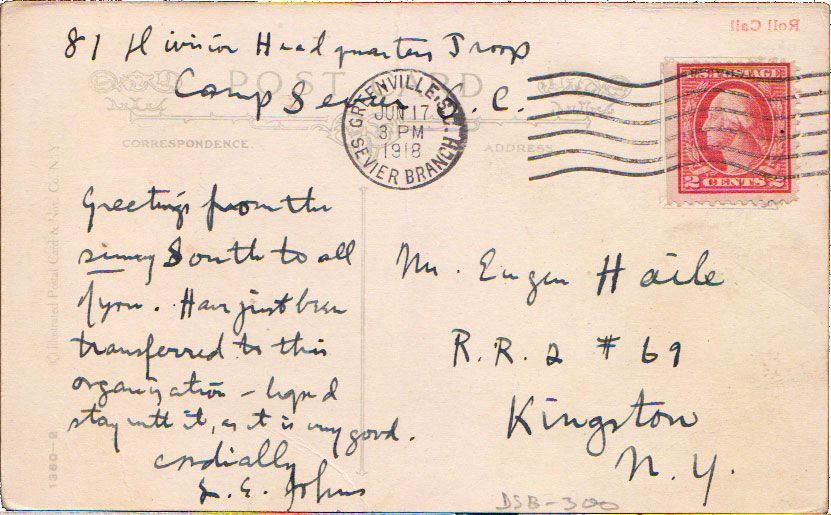 81 Division Headquarters Troop
Camp Sevier S. C.
Roll Call
POST CARD
GREENVILLE, S.C.
JUN 17
3 PM
1918
SEVIER BRANCH
U.S. POSTAGE
2 CENTS 2
CORRESPONDENCE.
ADDRESS
Greetings from the
sunny South to all
of you. Have just been
transferred to this
organization – hope I
stay with it, as it is very good.
Cordially
Johns
Mr. Eugen Haile
R. R. 2 # 69
Kingston
N. Y.
1380-2
DSB-300